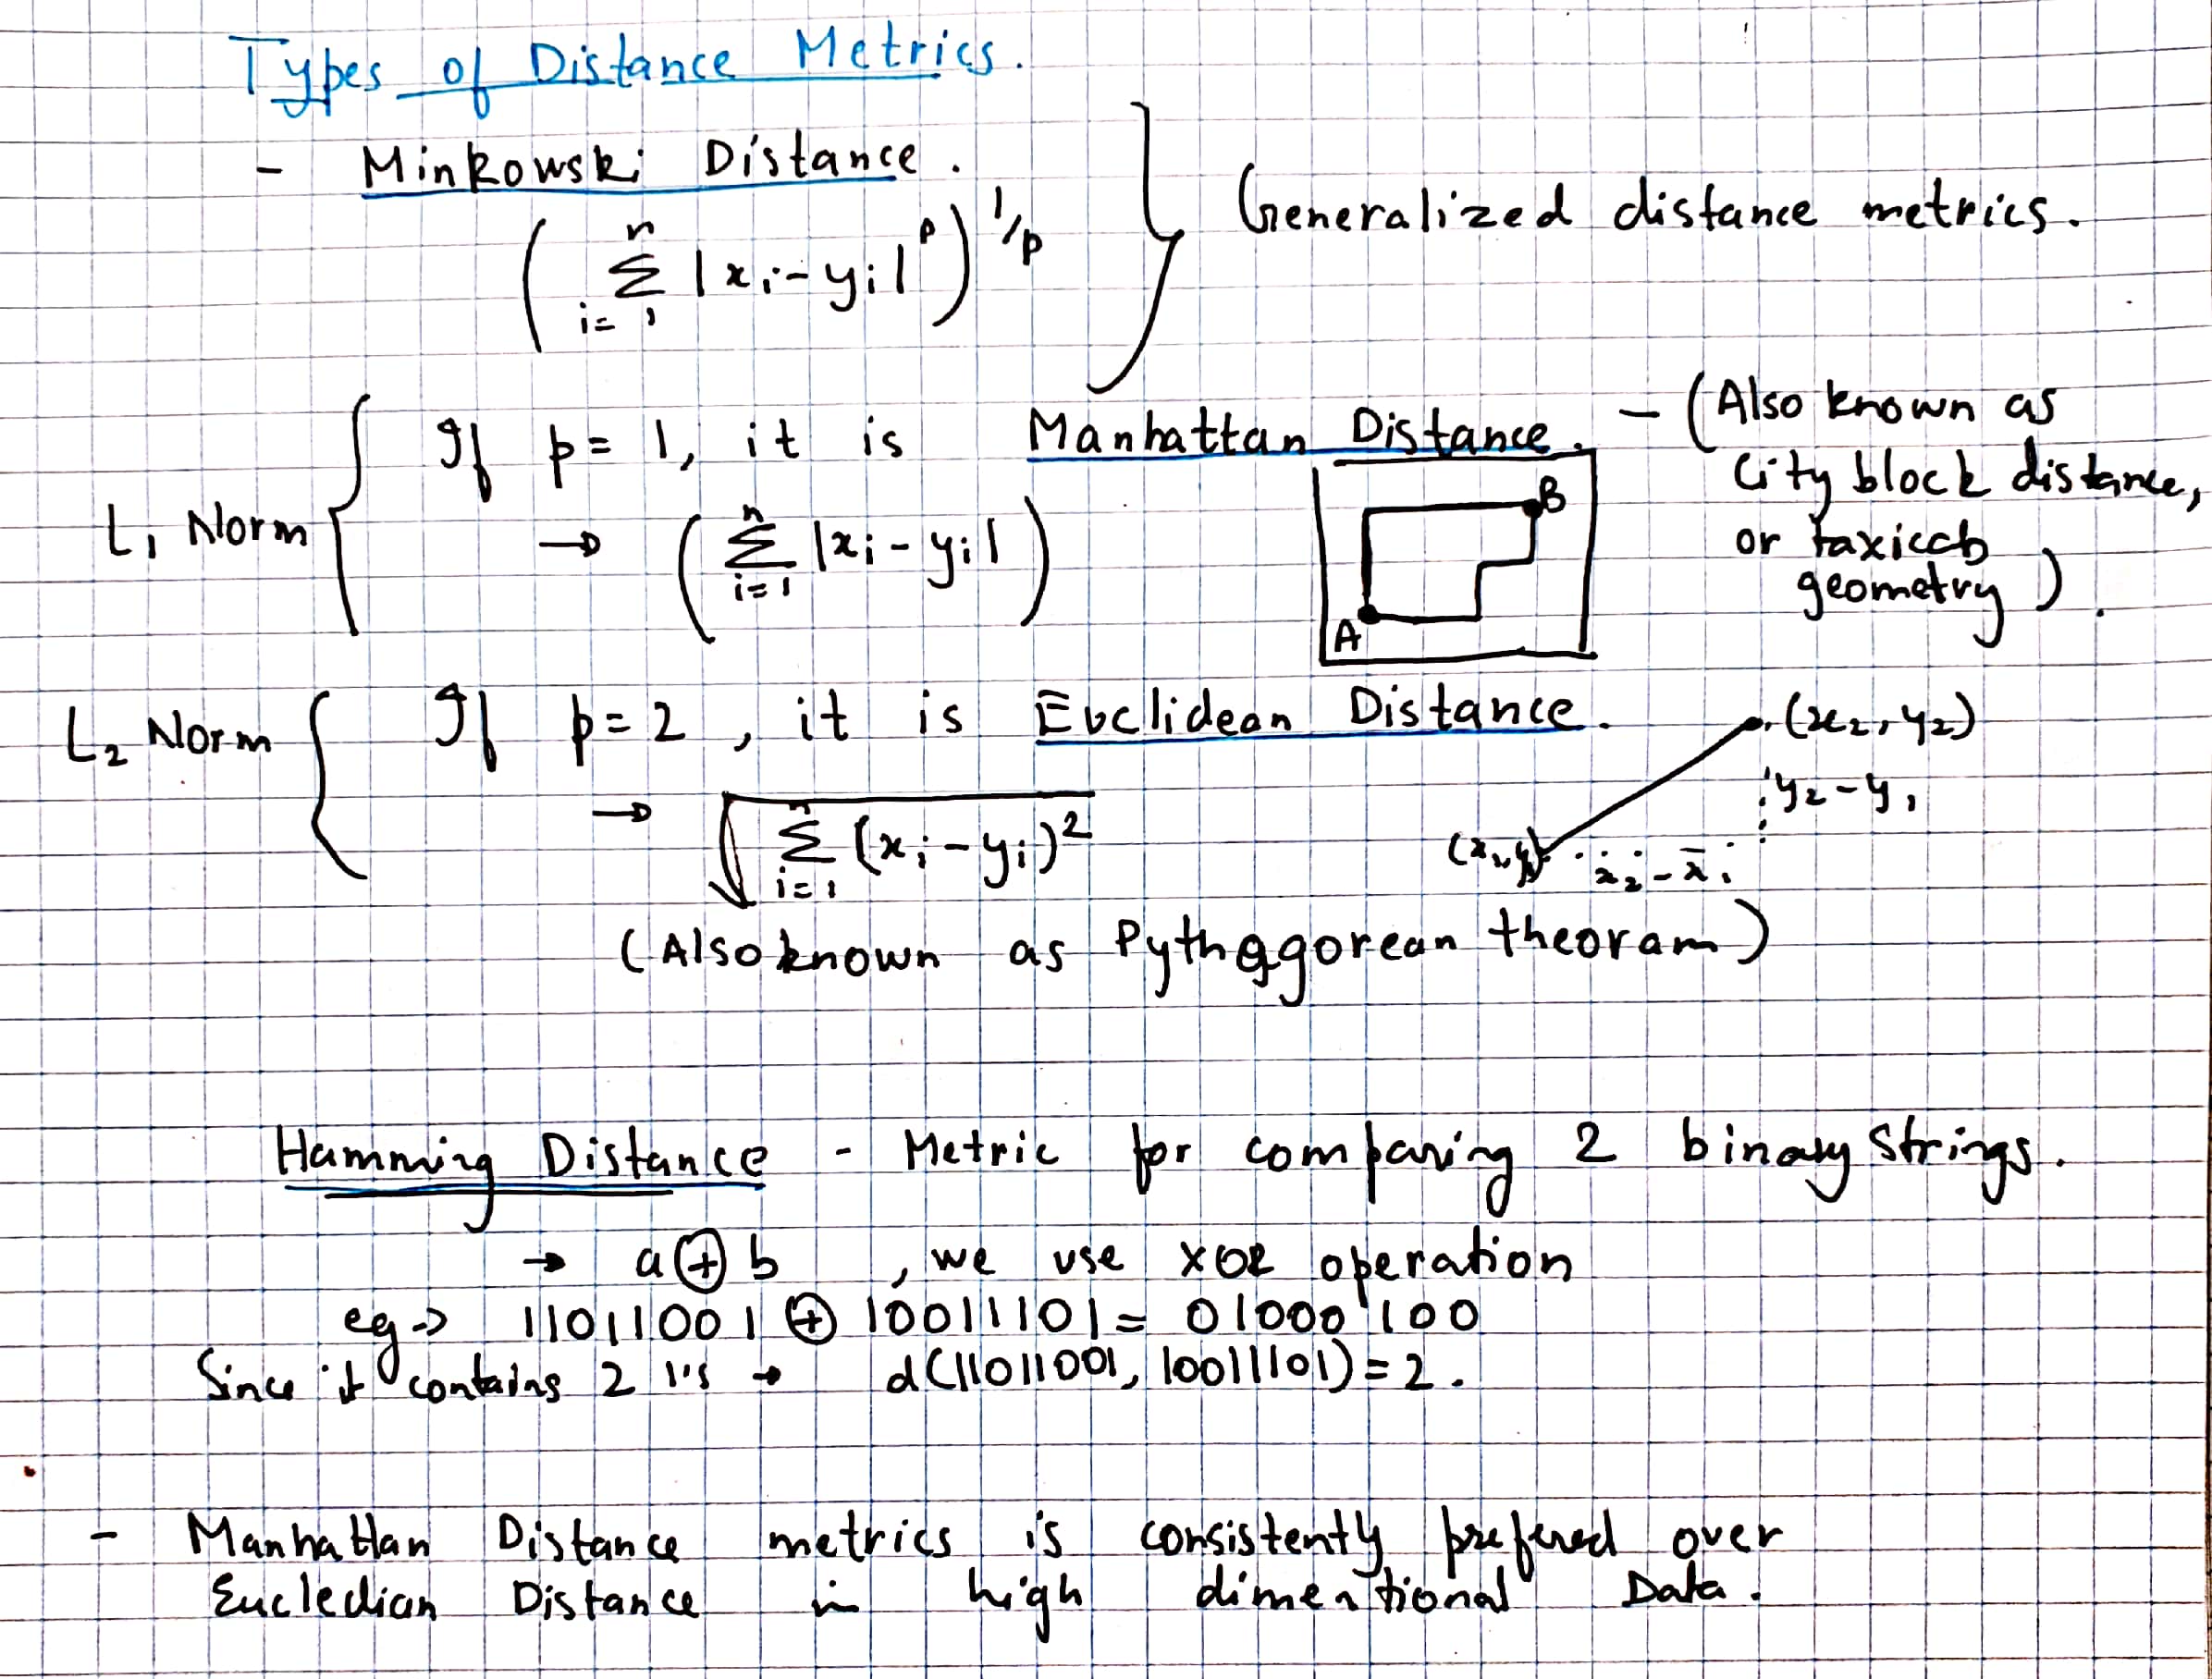 Types of Distance Metrics.
- Minkowski Distance.
( n Σ i=1 |xi - yi|^p )^1/p
Generalized distance metrics.
L1 Norm
If p = 1, it is Manhattan Distance. - (Also known as
City block distance,
or taxicab
geometry).
→ ( n Σ i=1 |xi - yi| )
B
A
L2 Norm
If p = 2, it is Euclidean Distance.
(x2, y2)
y2 - y1
(x1, y1)
x2 - x1
→ √ n Σ i=1 (xi - yi)^2
(Also known as Pythagorean theoram)
Hamming Distance - Metric for comparing 2 binary strings.
→ a ⊕ b , we use XOR operation
eg → 11011001 ⊕ 10011101 = 01000100
Since it contains 2 1's → d(11011001, 10011101) = 2.
- Manhattan Distance metrics is consistently prefered over
Eucledian Distance in high dimentional Data.